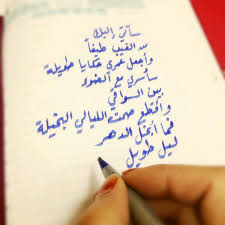 سآتي إليك
من الغيب طيفاً
وأجعل عمري حكايا طويلة
سأسري مع الضوء
بين السواقي
وأقطع صمت الليالي البخيلة
فما أبخل الدهر
ليل طويل